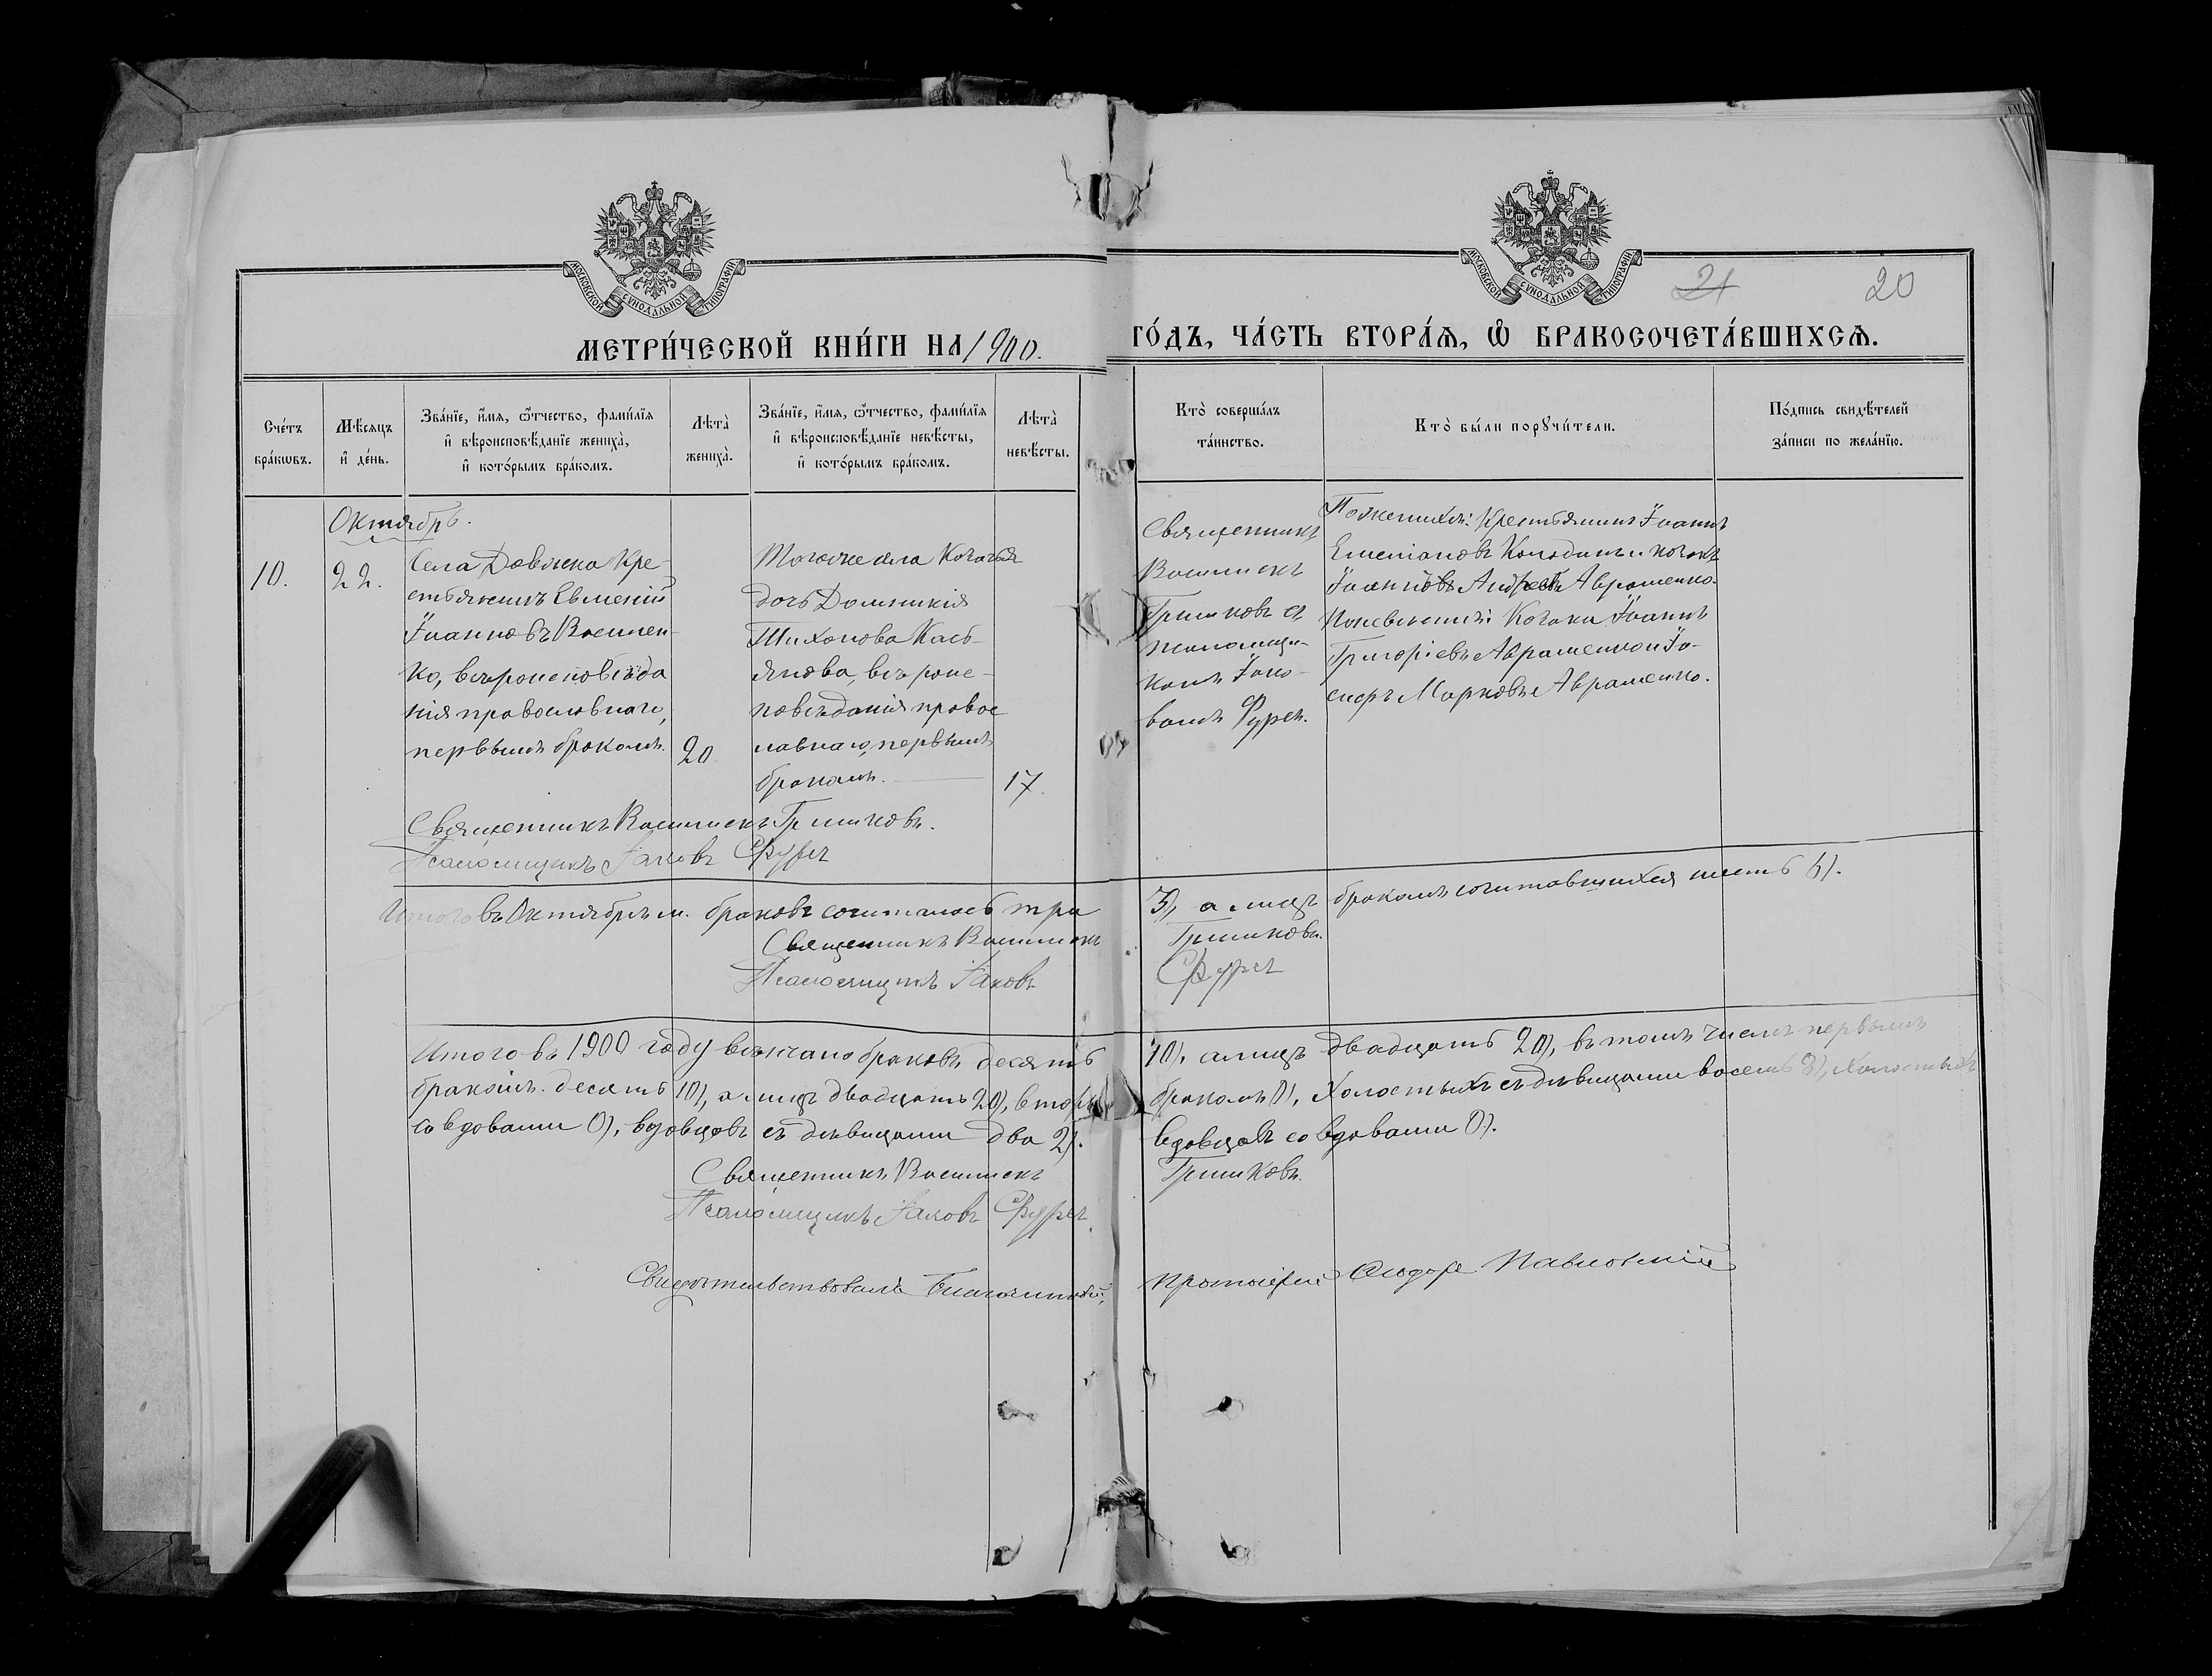 МОСКОВСКОЙ СѴНОДАЛЬНОЙ ТИПОГРАФІИ
МОСКОВСКОЙ СѴНОДАЛЬНОЙ ТИПОГРАФІИ
21 20
МЕТРИ́ЧЕСКОЙ КНИ́ГИ НА 1900. ГО́ДЪ, ЧА́СТЬ ВТОРА́Ѧ, Ѡ҆ БРАКОСОЧЕТА́ВШИХСѦ.
Сче́тъ
бра́кѡвъ.
Мѣ́сяцъ
и҆ де́нь.
Зва́нїе, и҆́мѧ, ѻ҆́тчество, фами́лїѧ
и҆ вѣроисповѣ́данїе жениха̀,
и҆ кото́рымъ бра́комъ.
Лѣта̀
жениха̀.
Зва́нїе, и҆́мѧ, ѻ҆́тчество, фами́лїѧ
и҆ вѣроисповѣ́данїе невѣ́сты,
и҆ кото́рымъ бра́комъ.
Лѣта̀
невѣ́сты.
Кто̀ соверша́лъ
та́инство.
Кто̀ бы́ли порꙋчи́тели.
По́дпись свидѣ́телей
за́писи по жела́нїю.
Октябрь.
10.
22.
Села Довжика Кре-
стьянинъ Евмений
Іоанновъ Васился-
ко, вѣроисповѣда
нія православнаго,
первымъ бракомъ.
20
Тогоже села Козачья
дочь Домникія
Тихонова Кась-
янова, вѣроис-
повѣданія правос
лавнаго, первымъ
бракомъ.
17.
Священникъ
Василискъ
Гришковъ съ
псаломщи-
комъ Іако-
вомъ Фурсъ.
По женихѣ: Крестьянинъ Іоаннъ
Емеліановъ Колодинъ и козакъ
Іоанновъ Авраменко.
По невѣстѣ: Козаки Іоаннъ
Григоріевъ Авраменко и Іо-
сифъ Марковъ Авраменко.
Священникъ Василискъ Гришковъ.
Псаломщикъ Іаковъ Фурсъ
Итого въ Октябрѣ м. браковъ сочиталось три 3), а лицъ бракомъ сочитавшихся шесть 6).
Священникъ Василискъ Гришковъ.
Псаломщикъ Іаковъ Фурсъ
Итого въ 1900 году вѣнчано браковъ десять 10), а лицъ двадцать 20), въ томъ числѣ первымъ
бракомъ десять 10), а лицъ двадцать 20), вторымъ бракомъ 0), Холостыхъ съ дѣвицами восемь 8), Холостыхъ
со вдовами 0), вдовцовъ съ дѣвицами два 2). вдовцовъ со вдовами 0).
Священникъ Василискъ Гришковъ.
Псаломщикъ Іаковъ Фурсъ.
Свидѣтельствовалъ Благочинный, Протоіерей Ѳеодоръ Павловскій